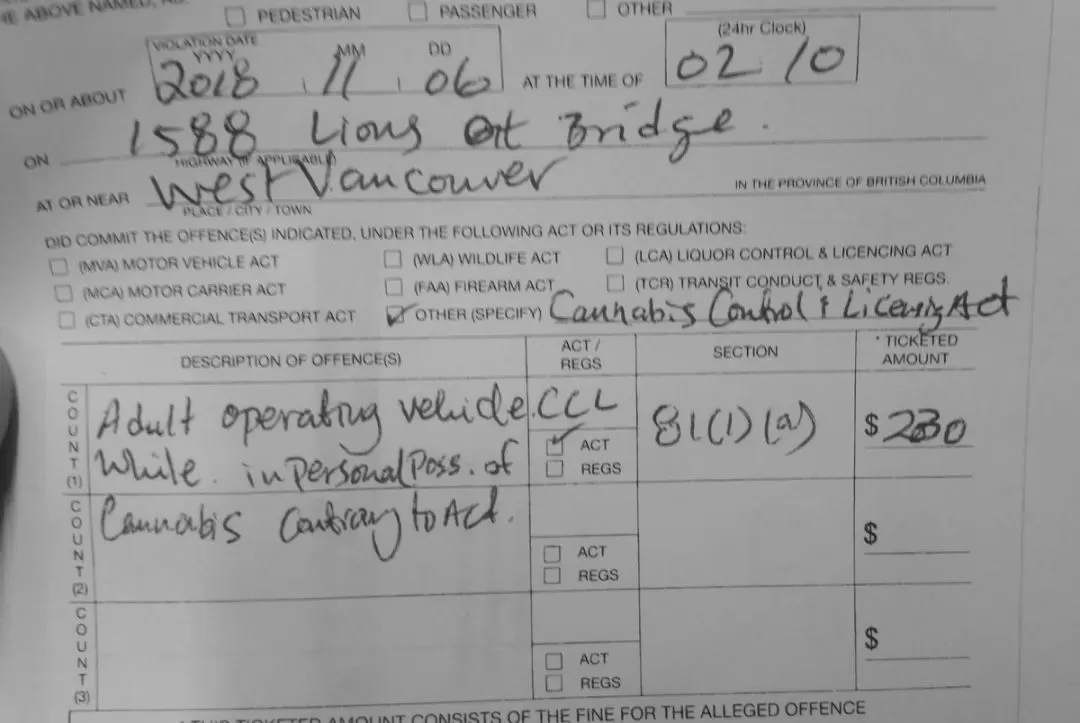 E ABOVE NAMED, AS
PEDESTRIAN PASSENGER OTHER
VIOLATION DATE
YYYY MM DD (24hr Clock)
ON OR ABOUT 2018 11 06 AT THE TIME OF 02 10
ON 1588 Lions Bridge.
HIGHWAY (IF APPLICABLE)
AT OR NEAR West Vancouver IN THE PROVINCE OF BRITISH COLUMBIA
PLACE / CITY / TOWN
DID COMMIT THE OFFENCE(S) INDICATED, UNDER THE FOLLOWING ACT OR ITS REGULATIONS:
(MVA) MOTOR VEHICLE ACT (WLA) WILDLIFE ACT (LCA) LIQUOR CONTROL & LICENCING ACT
(MCA) MOTOR CARRIER ACT (FAA) FIREARM ACT (TCR) TRANSIT CONDUCT & SAFETY REGS.
(CTA) COMMERCIAL TRANSPORT ACT OTHER (SPECIFY) Cannabis Control & Licensing Act
DESCRIPTION OF OFFENCE(S) ACT / REGS SECTION TICKETED AMOUNT
COUNT (1) Adult operating vehicle CCL 81(1)(a) $ 230
ACT
While in personal Poss. of REGS
COUNT (2) Cannabis Contrary to Act. $
ACT
REGS
COUNT (3) $
ACT
REGS
THIS TICKETED AMOUNT CONSISTS OF THE FINE FOR THE ALLEGED OFFENCE